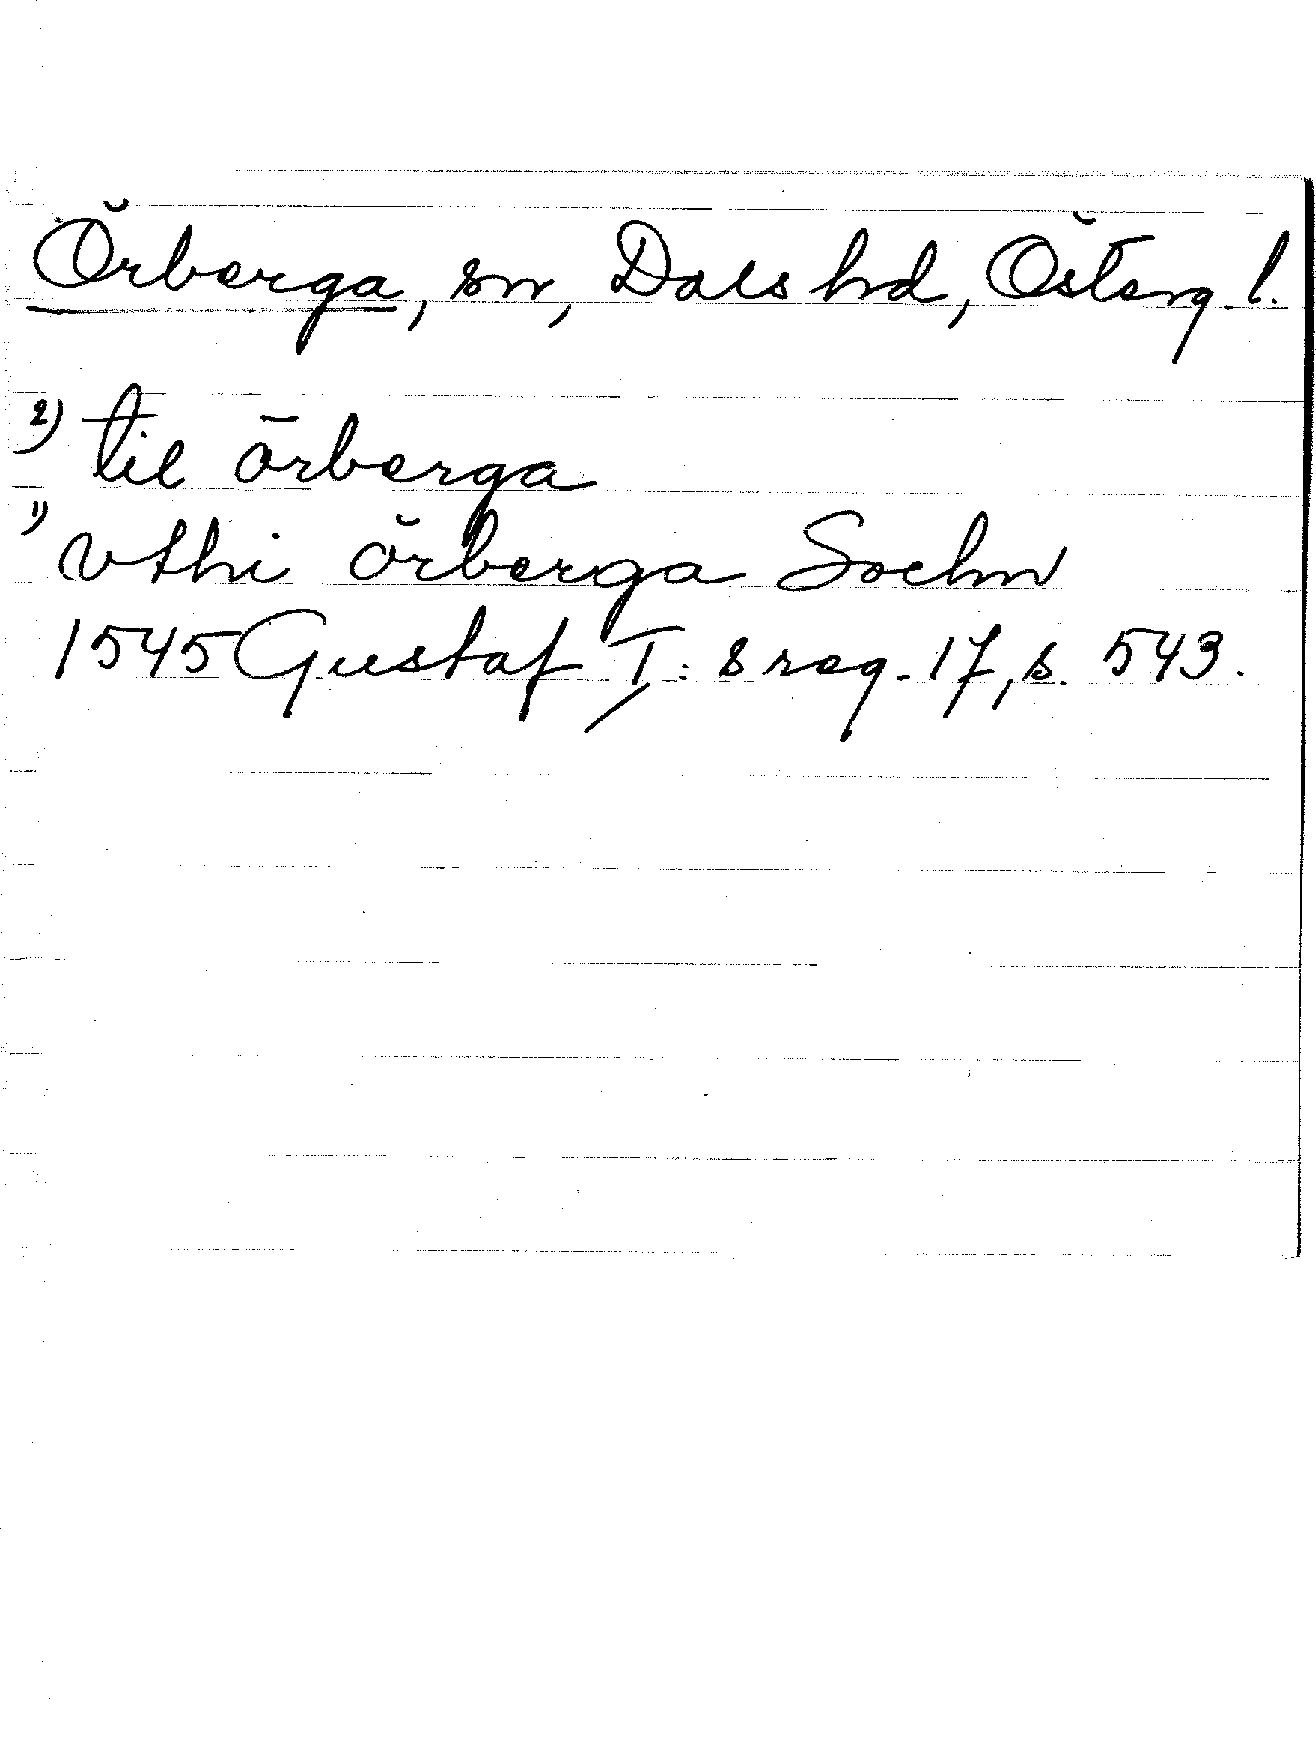 Örberga, sn, Dals hd, Österg. l.
2) til örberga
1) vthi örberga Sochn
1545 Gustaf I:s reg. 17, s. 543.